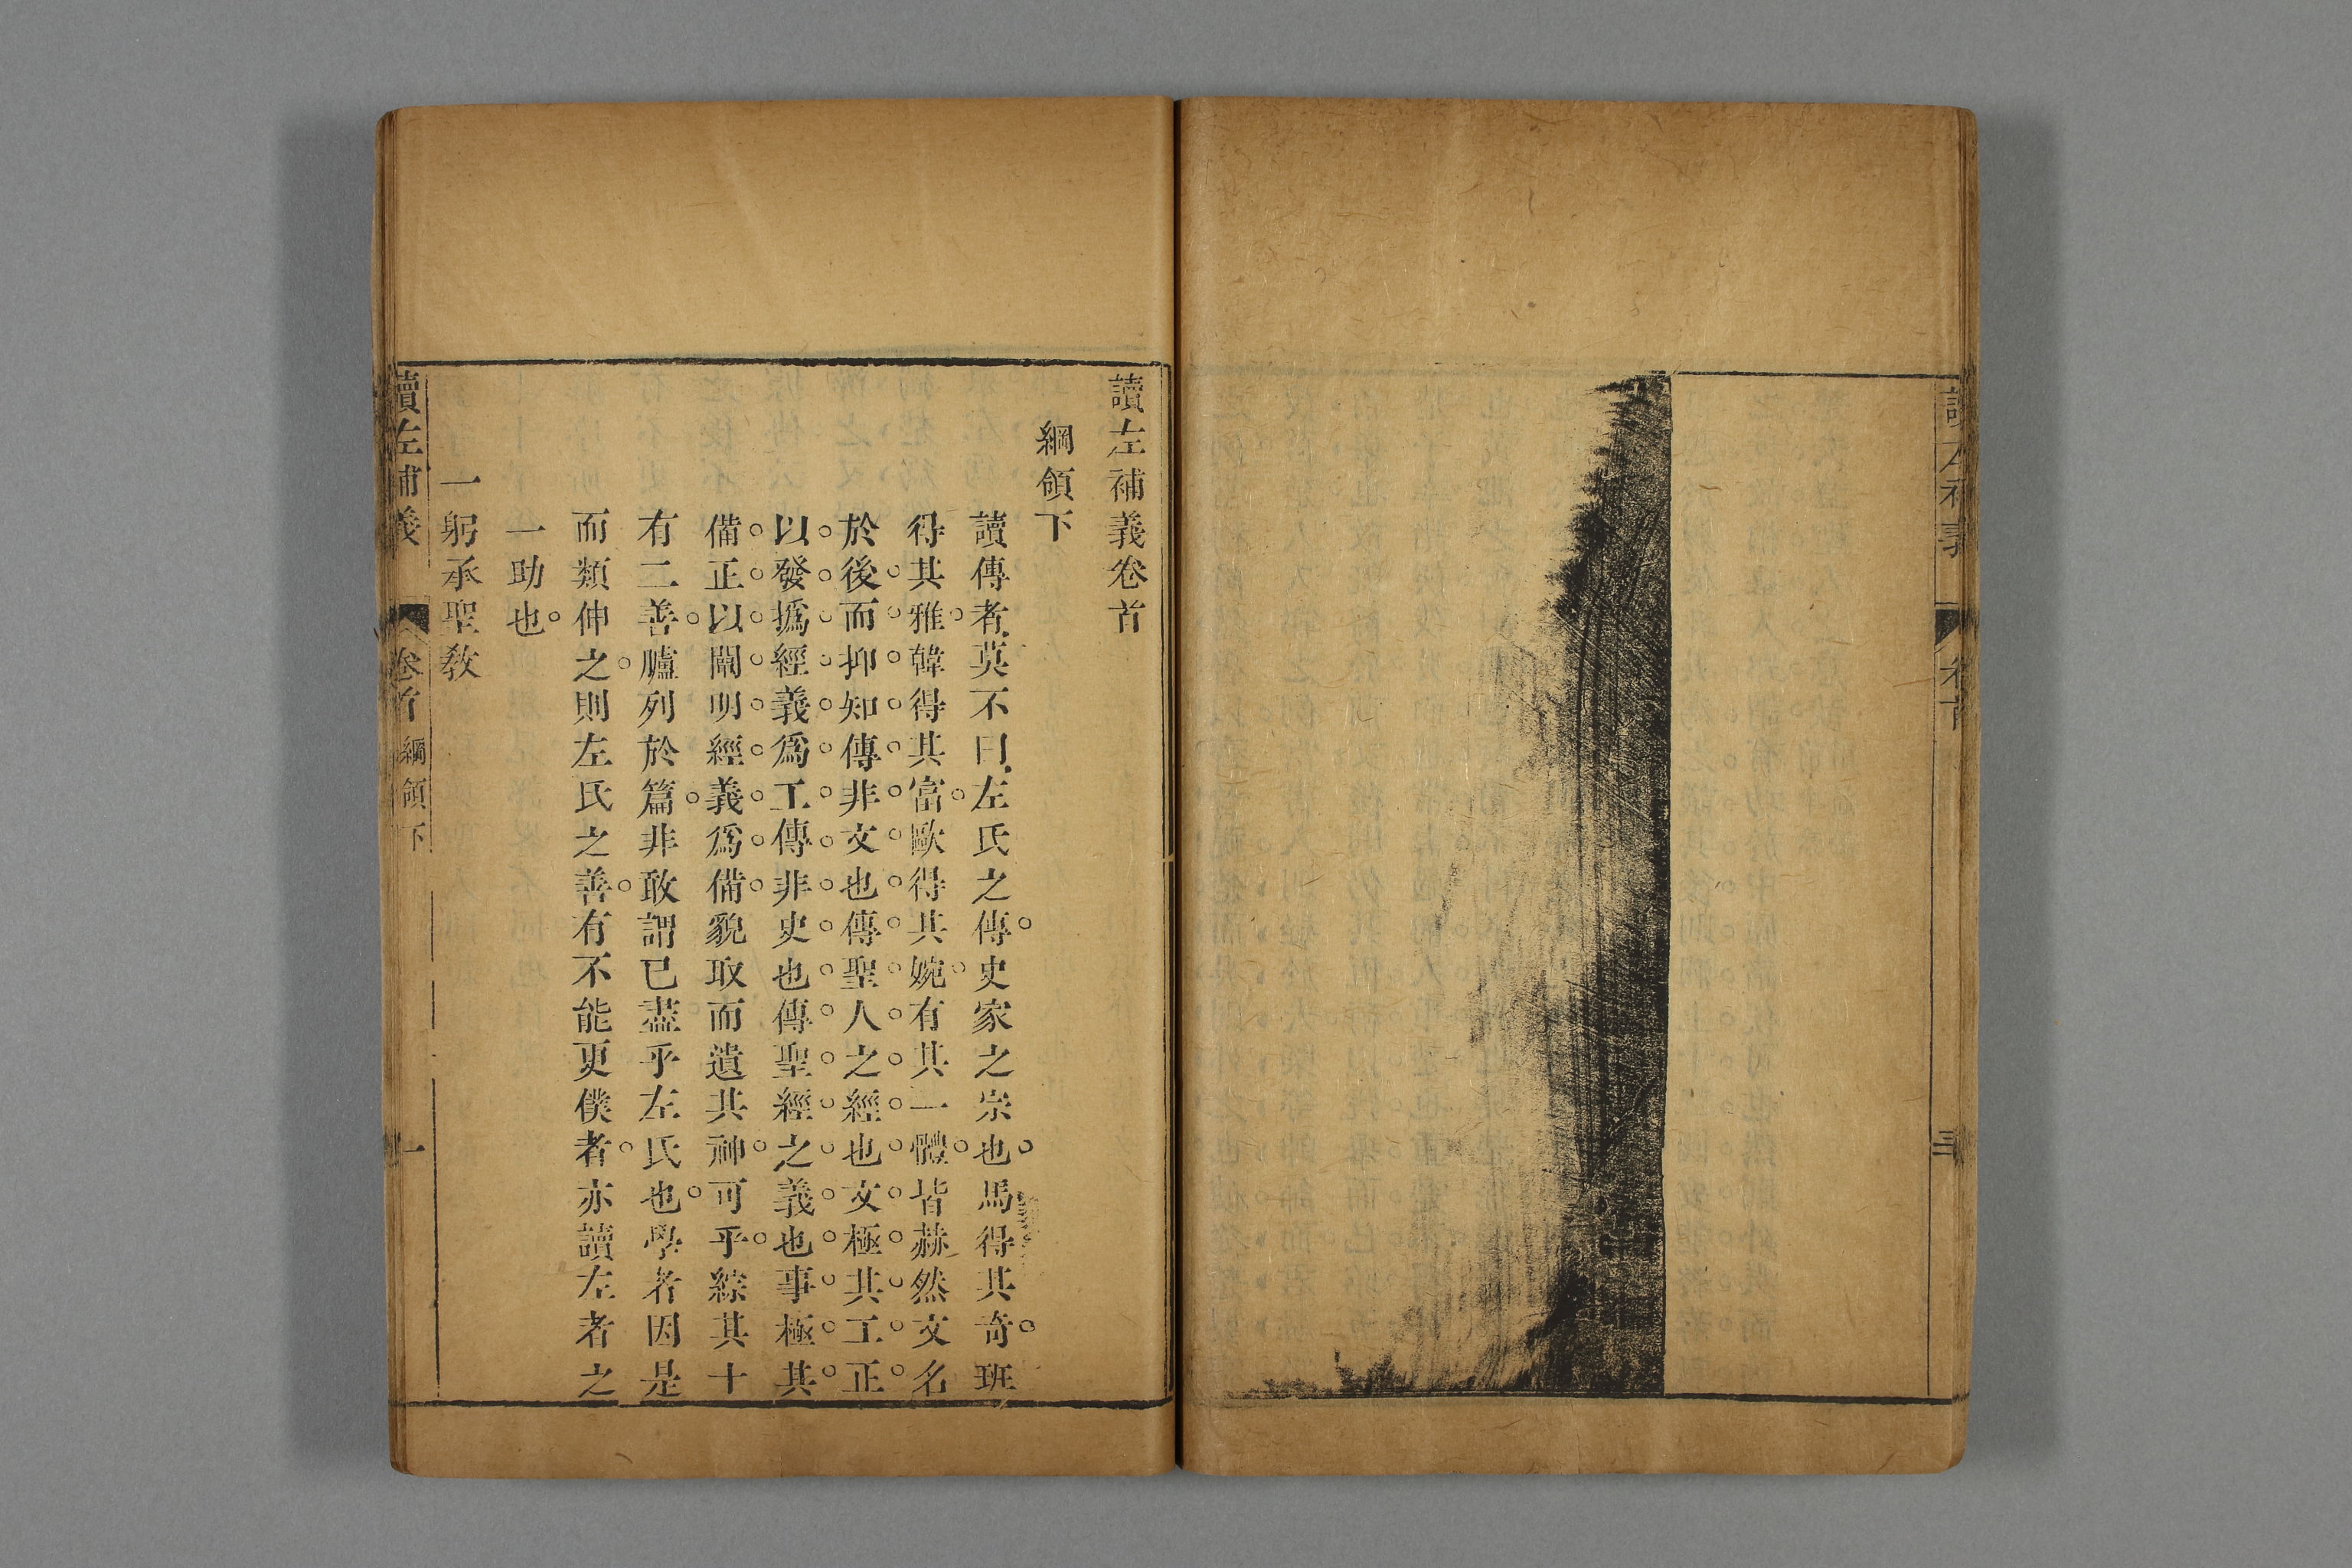 讀左補義卷首
綱領下
讀傳者莫不曰左氏之傳史家之宗也馬得其奇班
得其雅韓得其富歐得其婉有其一體皆赫然文名
於後而抑知傳非文也傳聖人之經也文極其工正
以發撝經義爲工傳非史也傳聖經之義也事極其
備正以闡明經義爲備貌取而遺其神可乎綜其十
有二善臚列於篇非敢謂已盡乎左氏也學者因是
而類伸之則左氏之善有不能更僕者亦讀左者之
一助也
一躬承聖敎
讀左補義 卷首 綱領下 一
卷首 三